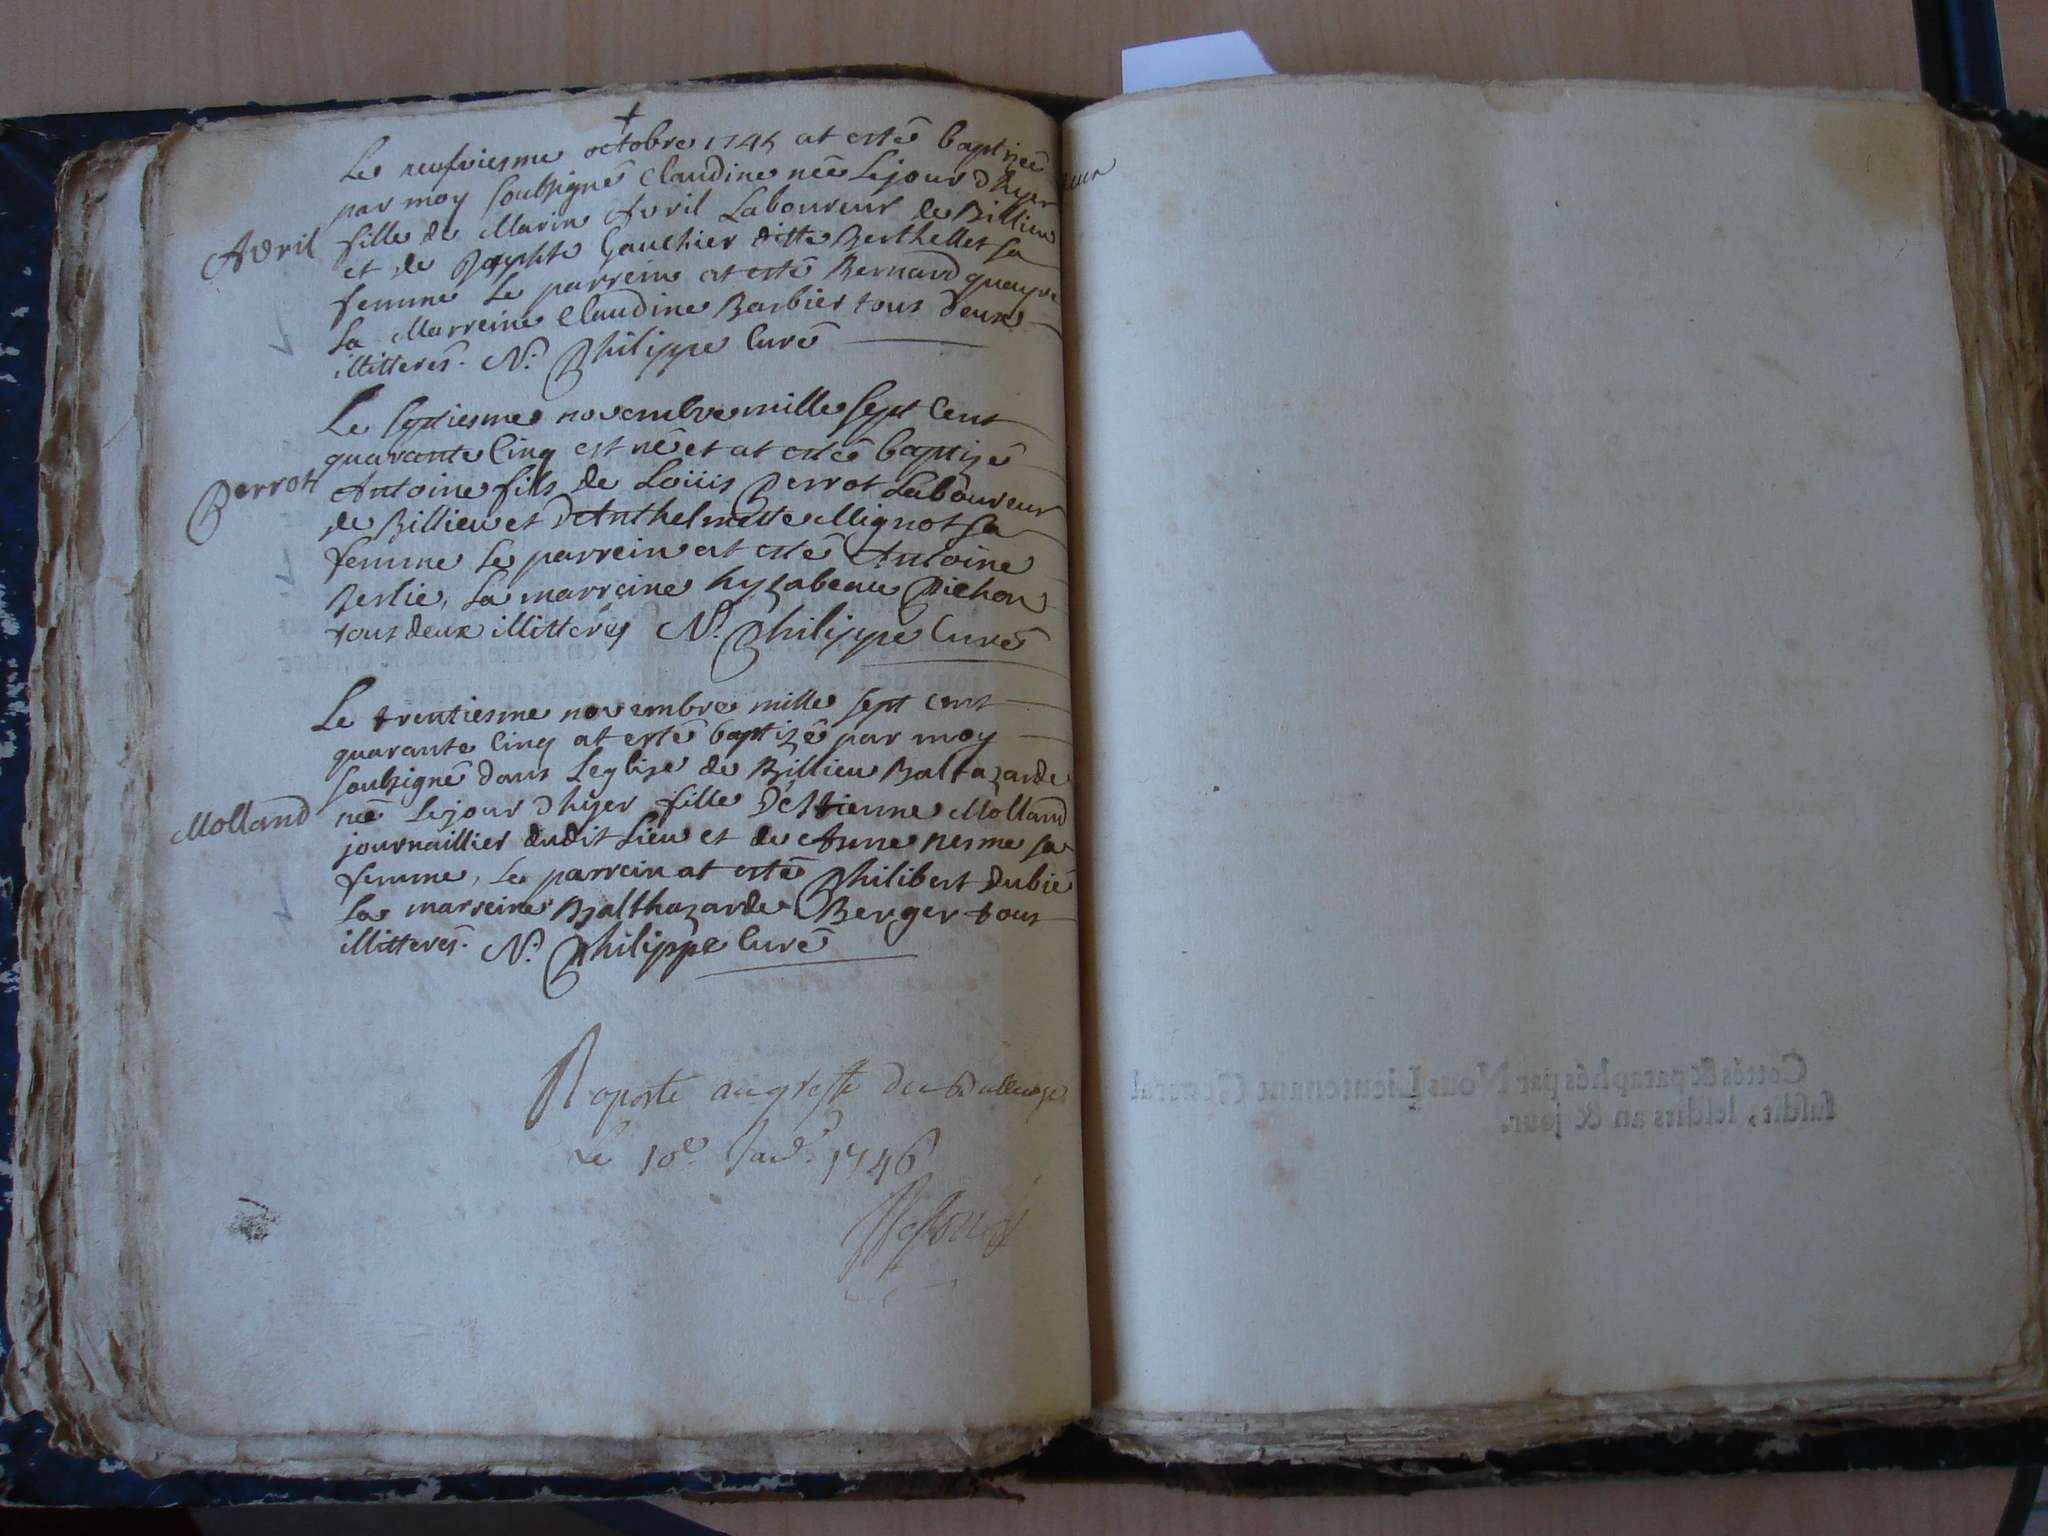 Le neufviesme octobre 1745 at esté baptizée
par moy soubsigné Claudine née Le jour d'hyer
Avril fille de Marin Avril Laboureur de Billieu
et de Gauthier ditte Berthellet sa
femme Le parrein at esté Bernard
La Marreine Claudine Barbier tous deux
illitterés. N. Philippe Curé
Le septiesme novembre mille sept Cent
quarante Cinq est né et at esté baptizé
Perrot Antoine fils de Loüis Perrot Laboureur
de Billieu et d'Anthelmette Mignot sa
femme Le parrein at esté Antoine
Berlie, La marreine hyzabeau Pichon
tous deux illitterés N. Philippe Curé
Le trentiesme novembre mille sept cent
quarante Cinq at esté baptizé par moy
soubsigné dans Leglise de Billieu Baltazarde
Molland née Le jour d'hyer fille D'estienne Molland
journaillier dudit Lieu et de Anne nesme sa
femme, Le parrein at esté Philibert Dubié
La marreine Balthazarde Berger tous
illitterés. N. Philippe Curé
Raporté au greffe du Balliage
Le 10e Janv. 1746
Cottés & paraphés par Nous Lieutenant General
susdit, lesdits an & jour.